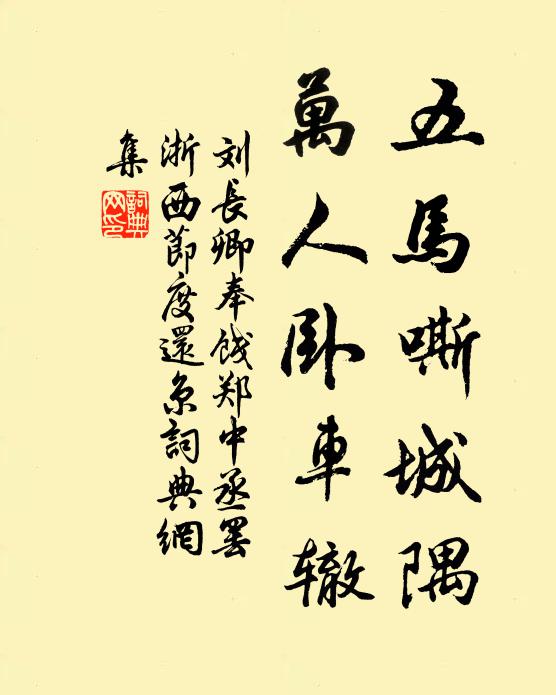 五馬嘶城隅
萬人卧車辙
刘長卿奉饯郑中丞罢
浙西節度還京詞典網
集
詞典網印